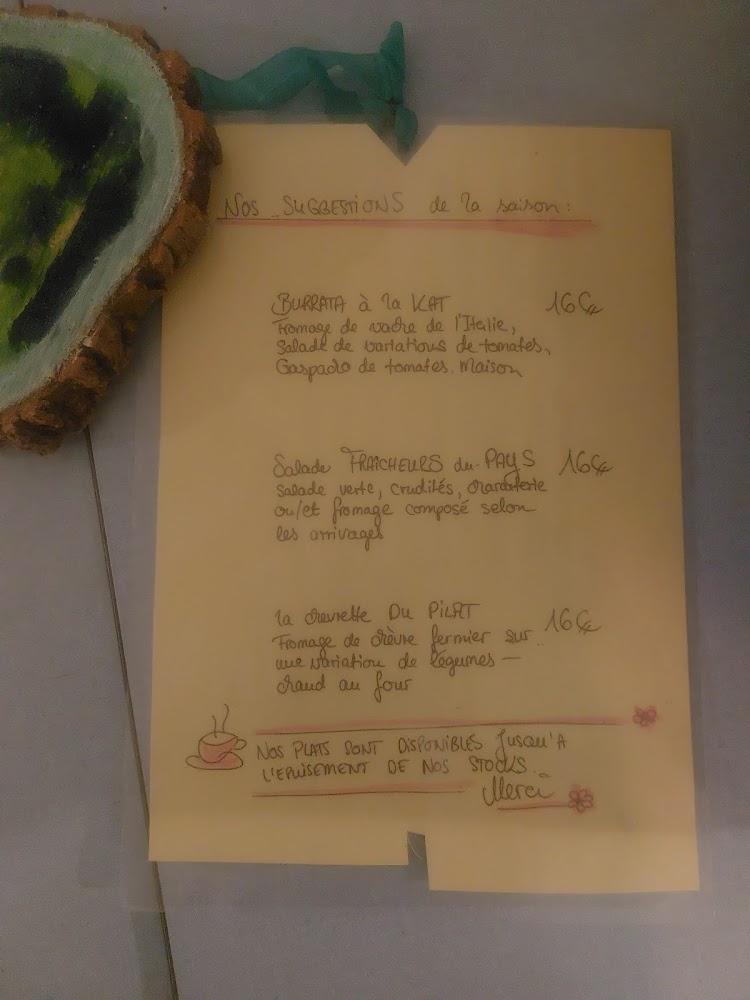 NOS SUGGESTIONS de la saison :
BURRATA à la KAT 16€
Fromage de vache de l'Italie,
Salade de variations de tomates,
Gaspacio de tomates. Maison
Salade FRAICHEURS du PAYS 16€
salade verte, crudités, charcuterie
ou/et fromage composé selon
les arrivages
la chevrette DU PILAT 16€
Fromage de chèvre fermier sur
une variation de légumes —
chaud au four
NOS PLATS SONT DISPONIBLES Jusqu'A
L'EPUISEMENT DE NOS STOCKS.
Merci